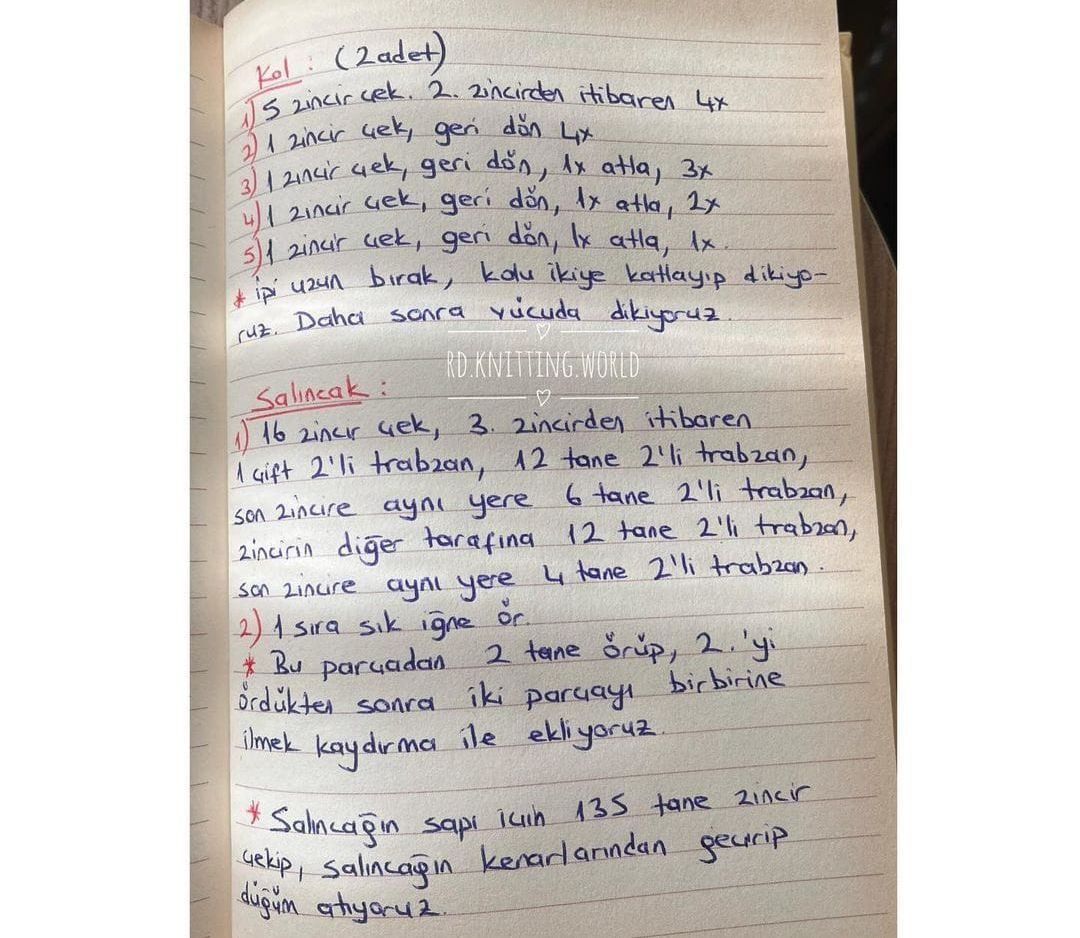 Kol : (2 adet)
1) 5 zincir çek. 2. zincirden itibaren 4x
2) 1 zincir çek, geri dön 4x
3) 1 zincir çek, geri dön, 1x atla, 3x
4) 1 zincir çek, geri dön, 1x atla, 2x
5) 1 zincir çek, geri dön, 1x atla, 1x.
* ipi uzun bırak, kolu ikiye katlayıp dikiyo-
ruz. Daha sonra vücuda dikiyoruz.
RD.KNITTING.WORLD
Salıncak :
1) 16 zincir çek, 3. zincirden itibaren
1 çift 2'li trabzan, 12 tane 2'li trabzan,
son zincire aynı yere 6 tane 2'li trabzan,
zincirin diğer tarafına 12 tane 2'li trabzan,
son zincire aynı yere 4 tane 2'li trabzan.
2) 1 sıra sık iğne ör.
* Bu parçadan 2 tane örüp, 2.'yi
ördükten sonra iki parçayı birbirine
ilmek kaydırma ile ekliyoruz.
* Salıncağın sapı için 135 tane zincir
çekip, salıncağın kenarlarından geçirip
düğüm atıyoruz.